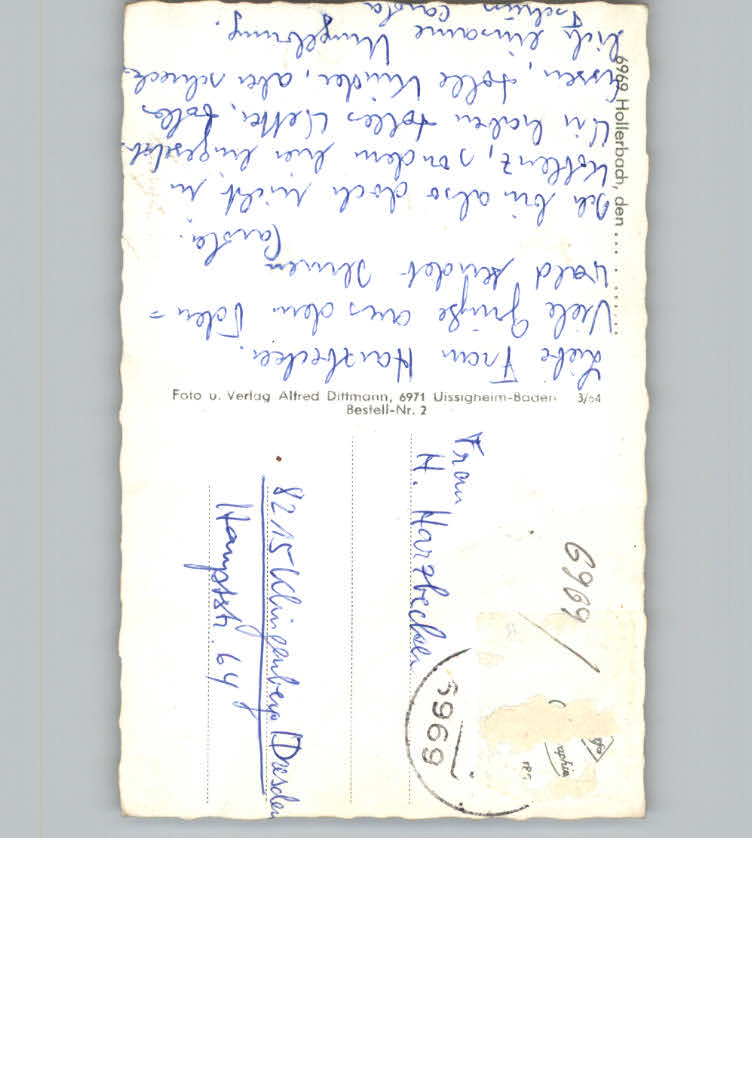 6969 Hollerbach, den
Liebe Frau Harzbecker.
Viele Grüße aus dem Oden=
wald sendet Ihnen
Carola.
Ich bin also doch nicht in
Koblenz, sondern hier eingesetzt.
Wir haben tolles Wetter, tolles
Essen, tolle Kinder, aber schreck-
lich einsame Umgebung.
Tschüs Carola
Foto u. Verlag Alfred Dittmann, 6971 Uissigheim-Baden 3/64
Bestell-Nr. 2
6969
6969
Frau
H. Harzbecker
8215 Klingenberg (Dresden
Hauptstr. 64